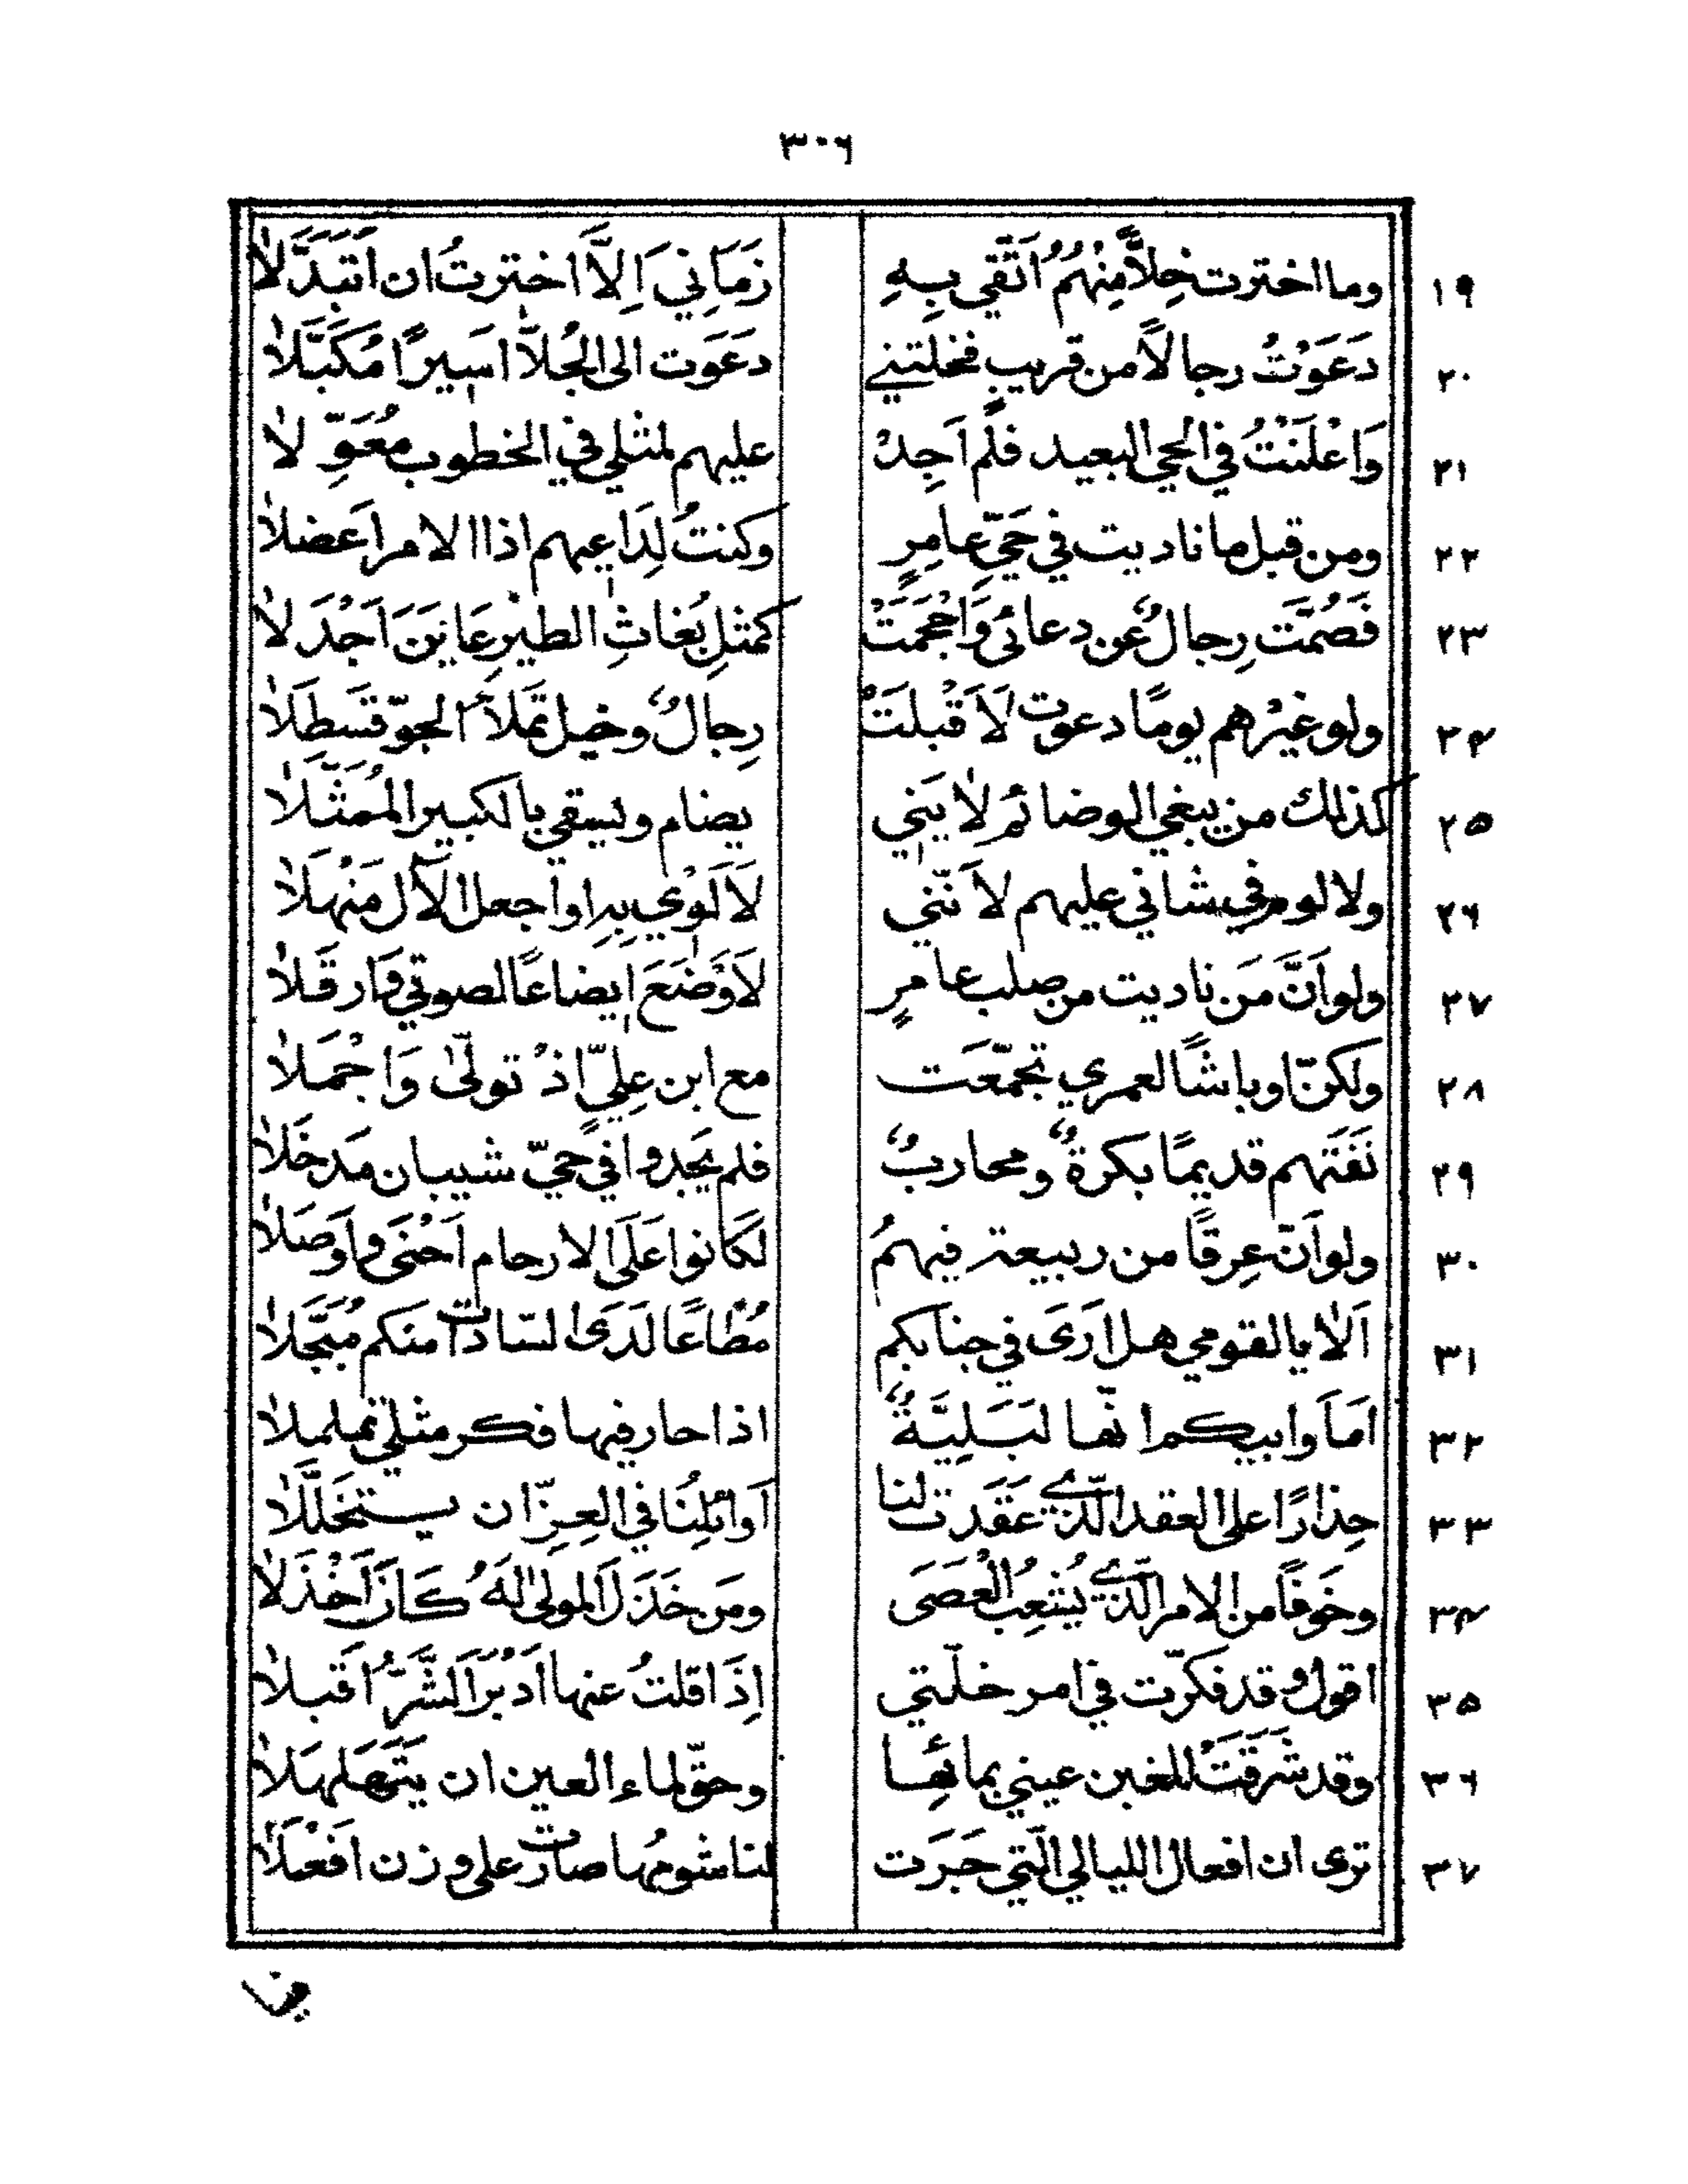 ٣٠٦
١٩ وما اخترت خِلاًّ مِنْهُمُ اَتَّقي بِهِ زَمَاني اِلاَّ اخترتُ ان اَتَبَدَّلاٰ
٢٠ دَعَوْتُ رجالاً من قريبٍ فخلتني دعَوت الى الجُلاّ اسِيرًا مُكَبَّلاٰ
٢١ وَاَعْلَنْتُ في الحي البعيد فلم اَجِدْ عليهم لمثلي في الخطوب مُعَوِّلاٰ
٢٢ ومن قبل ما ناديت في حَيِّ عامِرٍ وكنتُ لِدَاعيهم اذا الامر اَعضلاٰ
٢٣ فَصُمَّت رِجالٌ عن دعائى وَاَحْجَمَتْ كمثلِ بُغاثِ الطيرِ عَايَنَ اَجْدَلاٰ
٢٤ ولو غيْرهم يومًا دعوت لَاَقْبلَتْ رِجالٌ وخيل تَملأُ الجوّ قَسطَلاٰ
٢٥ كذالك من يبغي الوضائم لاٰ يَني يضام ويسقي بالكبير المُمَثَّلاٰ
٢٦ ولا لوم في شاني عليهم لاَنّني لاَلَوْي بهِ او اجعل الآل مَنْهَلاٰ
٢٧ ولو اَنَّ مَن ناديت من صلب عامرٍ لاَوْضَعَ ايضاعًا لصوتي وَارقَلاٰ
٢٨ ولكنّ اوباشًا لعمري تجمّعَت مع ابن عِليٍّ اذْ تولّىٰ وَاَجْمَلاٰ
٢٩ نَفَتهم قديمًا بكرةٌ ومحاربٌ فلم يَجِدوا في حيّ شيبان مَدخَلاٰ
٣٠ ولو اَنّ عِرقًا من ربيعة فيهمُ لكَانوا عَلَى الارحام اَحْنَى واَوصَلاٰ
٣١ اَلاٰ يا لقومي هل ارَى في جنابكم مُطاعًا لَدَى السّادات منكم مُبَجَّلاٰ
٣٢ امَا وابيكم انّها لبَلِيَّةٌ اذا حار فيها فكر مثلي تململاٰ
٣٣ حِذارًا على العقد الّذي عَقَدت لنا اَوائلُنا في العِزّ ان يستخَلَّلاٰ
٣٤ وخَوفًا من الامر الّذي يُتعِبُ العُصَى ومَن خَذَلَ المولىٰ لَهُ كَانَ اَخْذَلاٰ
٣٥ اقول وقد فكّرت في امر خلّتي اِذَا قلتُ عنها اَدْبَرَ الشَّرُّ اَقبلاٰ
٣٦ وقد شَرِقَتْ للغبن عيني بمائِها وحقّ لماء العين ان يتَهَلهَلاٰ
٣٧ ترى ان افعال الليالي الّتي جَرَت لنا شومُها صارت على وزن اَفْعَلاَٰ